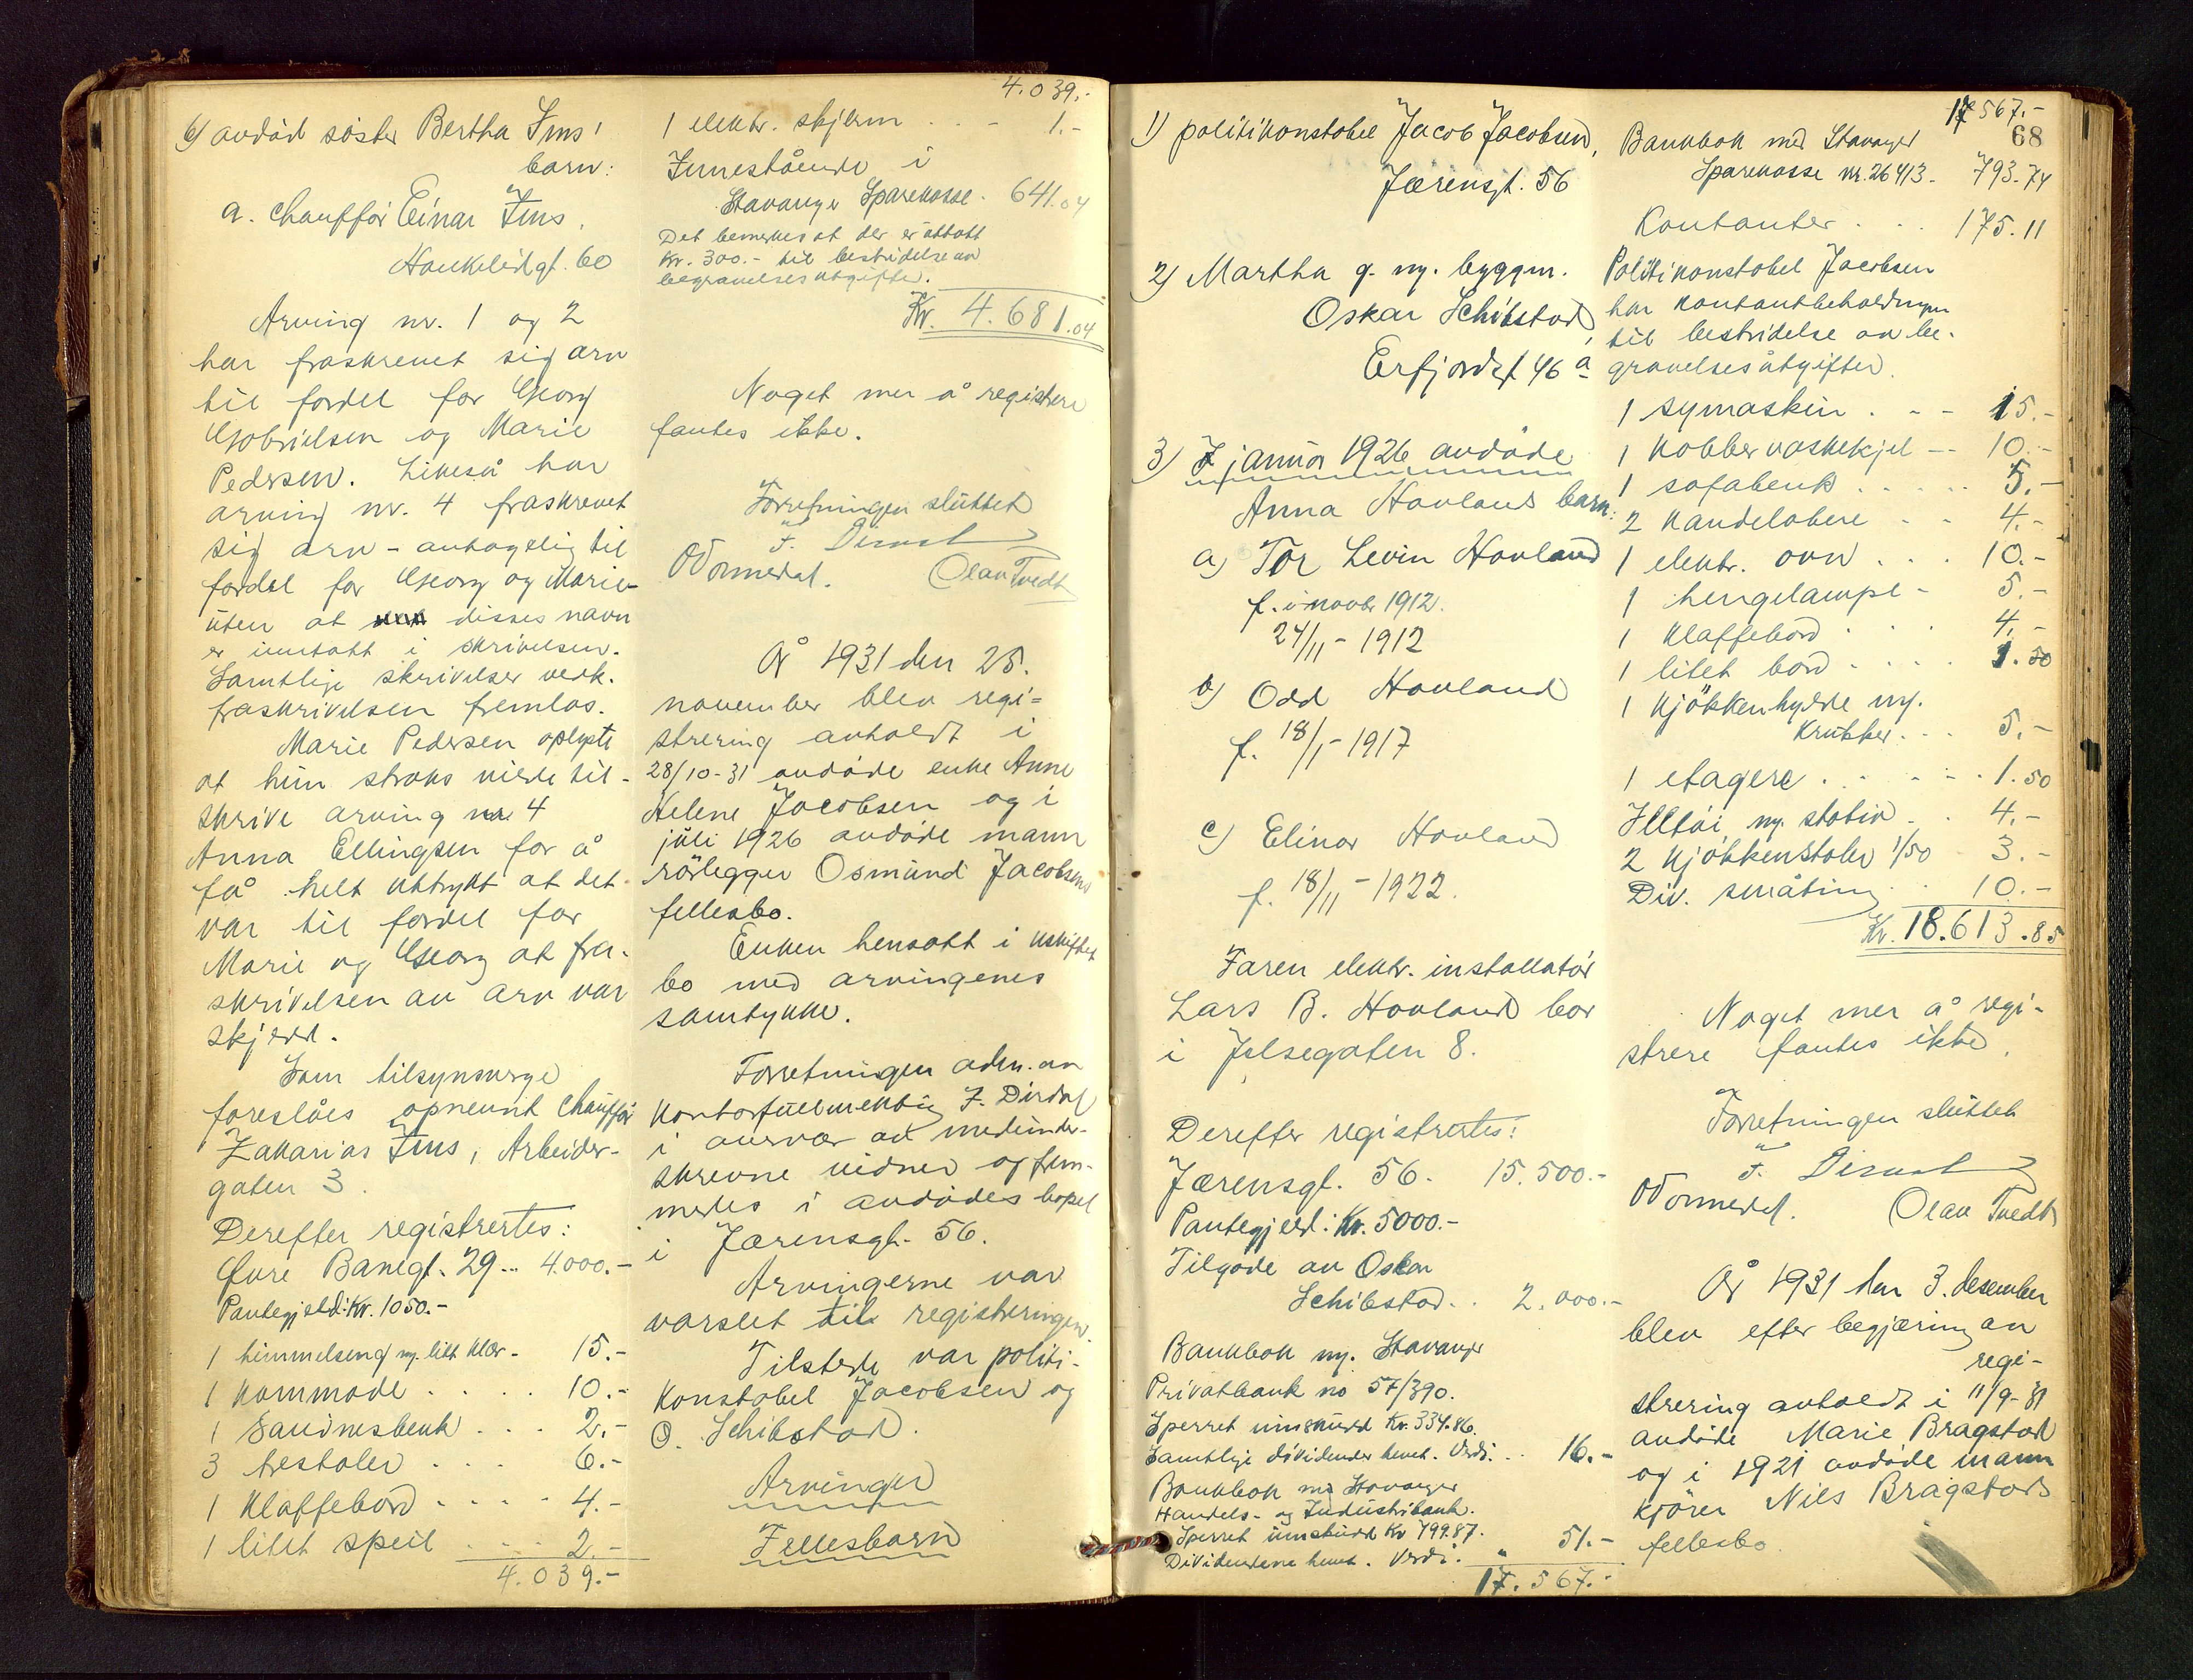 6) avdöd söster Bertha Ims'
barn:
a. Chaufför Einar Ims,
Haukeligt. 60
Arving nr. 1 og 2
har fraskrevet sig arv
til fordel for Georg
Gabrielsen og Marie
Pedersen. Likeså har
arving nr. 4 fraskrevet
sig arv - antagelig til
fordel for Georg og Marie -
uten at disses navn
er inntatt i skrivelsen.
Samtlige skrivelser vedk.
fraskrivelsen fremlas.
Marie Pedersen oplyste
at hun straks vilde til-
skrive arving nr. 4
Anna Ellingsen for å
få helt uttrykt at det
var til fordel for
Marie og Georg at fra-
skrivelsen av arv var
skjedd.
Som tilsynsverge
foreslåes opnevnt Chaufför
Zakarias Ims, Arbeider-
gaten 3.
Derefter registrertes:
Övre Banegt. 29 ... 4.000.-
Pantegjeld: Kr. 1050.-
1 himmelseng m. litt klær - 15.-
1 kommode .... 10.-
1 Sandnesbenk ... 2.-
3 trestoler .... 6.-
1 klaffebord .... 4.-
1 litet speil .... 2.-
4.039.-
4.039.-
1 elektr. skjerm ... 1.-
Innestående i
Stavanger Sparekasse. 641.04
Det bemerkes at der er uttatt
Kr. 300.- til bestridelse av
begravelsesutgifter.
Kr. 4.681.04
Noget mer å registrere
fantes ikke.
Forretningen sluttet
F. Dirdal
O Vormedal. Olav Tvedt
År 1931 den 25.
november blev regi-
strering avholdt i
28/10-31 avdöde enke Anne
Helene Jacobsen og i
juli 1926 avdöde mann
rörlegger Osmund Jacobsens
fellesbo.
Enken hensatt i uskiftet
bo med arvingenes
samtykke.
Forretningen adm. av
kontorfullmektig F. Dirdal
i overvær av medunder-
skrevne vidner og frem-
medes i avdödes bopel
i Jærensgt. 56.
Arvingerne var
varslet til registreringen.
Tilstede var politi-
konstabel Jacobsen og
O. Schibstad.
Arvinger
Fellesbarn
1) politikonstabel Jacob Jacobsen,
Jærensgt. 56
2) Martha g. m. byggm.
Oskar Schibstad,
Erfjordgt 46 a
3) I januar 1926 avdöde
Anna Hovlands barn:
a) Tor Levin Hovland
f. i novbr 1912.
24/11 - 1912
b) Odd Hovland
f. 18/1 - 1917
c) Elinor Hovland
f. 18/11 - 1922.
Faren elektr. installatör
Lars B. Hovland bor
i Jelsegaten 8.
Derefter registrertes:
Jærensgt. 56. 15.500.-
Pantegjeld: Kr. 5000.-
Tilgode av Oskar
Schibstad .. 2.000.-
Bankbok m. Stavanger
Privatbank no 57/390.
Sperret innskudd Kr. 334.86.
Samtlige dividender hevet. Verdi .. 16.-
Bankbok m Stavanger
Handels- og Industribank.
Sperret innskudd Kr 799.87.
Dividendene hevet. Verdi. " 51.-
17.567.-
17567.-
68
Bankbok med Stavanger
Sparekasse nr. 26413 - 793.74
Kontanter ... 175.11
Politikonstabel Jacobsen
har kontantbeholdningen
til bestridelse av be-
gravelsesutgifter.
1 symaskin ... 15.-
1 kobbervaskekjel -- 10.-
1 sofabenk ..... 5.-
2 kandelabere .. 4.-
1 elektr. ovn ... 10.-
1 hengelampe - 5.-
1 klaffebord ... 4.-
1 litet bord .... 1.50
1 kjökkenhylde m.
krukker ... 5.-
1 etagere .... 1.50
Illtöi m. stativ .. 4.-
2 kjökkenstoler 1/50 3.-
Div. småting .. 10.-
Kr. 18.613.85
Noget mer å regi-
strere fantes ikke.
Forretningen sluttet
F. Dirdal
O Vormedal. Olav Tvedt
År 1931 den 3. desember
blev efter begjæring av
regi-
strering avholdt i 11/9-31
avdöde Marie Bragstad
og i 1921 avdöde mann
kjörer Nils Bragstads
fellesbo.